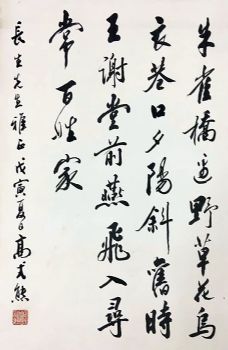 朱雀橋邊野草花烏
衣巷口夕陽斜舊時
王謝堂前燕飛入尋
常百姓家
長生先生雅正戊寅夏日高式熊